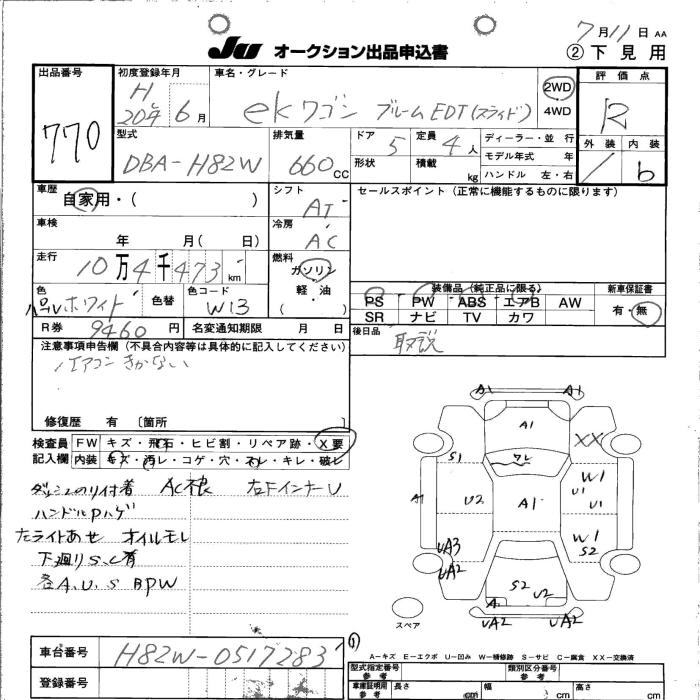 7月11日 AA
JU オークション出品申込書
②下見用
出品番号
770
初度登録年月
H
20年 6月
車名・グレード
ekワゴン ブルームEDT(スライド)
2WD
4WD
評価点
R
外装 内装
/ b
型式
DBA-H82W
排気量
660 CC
ドア 5
形状
定員 4人
積載 kg
ディーラー・並行
モデル年式 年
ハンドル 左・右
車歴
自家用・( )
シフト
AT
セールスポイント(正常に機能するものに限ります)
車検
年 月( 日)
冷房
AC
走行
10万4千473 km
燃料
ガソリン
軽・油
( )
色
パールホワイト
色替
色コード
W13
装備品(純正品に限る)
新車保証書
PS PW ABS エアB AW
SR ナビ TV カワ
有・無
R券 9460円
名変通知期限 月 日
後日品
取説
注意事項申告欄(不具合内容等は具体的に記入してください)
エアコン きかない
修復歴 有〔箇所 〕
検査員
記入欄
FW キズ・飛石・ヒビ割・リペア跡・X要
内装 キズ・汚レ・コゲ・穴・スレ・キレ・破レ
ダッシュのり付着 AC不良 右Fインナー U
ハンドルPハゲ
左ライトあせ オイルモレ
下廻りS.C有
各A.U.S BPW
A1 A1
A1
XX
S1
ワレ
W1
A1
U2
A1
U1
U1
W1
S2
UA3
UA2
S2
U2
A1
UA2 UA2
スペア
車台番号
H82W-0517283
登録番号
(1)
A-キズ E-エクボ U-凹み W-補修跡 S-サビ C-腐食 XX-交換済
型式指定番号
参考
類別区分番号
参考
車庫証明用
参考
長さ cm
幅 cm
高さ cm